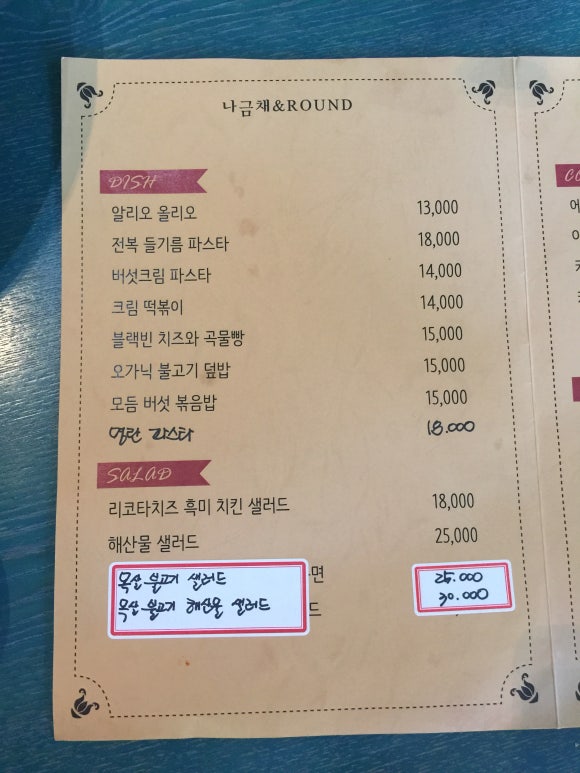 나금채&ROUND
DISH
알리오 올리오 13,000
전복 들기름 파스타 18,000
버섯크림 파스타 14,000
크림 떡볶이 14,000
블랙빈 치즈와 곡물빵 15,000
오가닉 불고기 덮밥 15,000
모듬 버섯 볶음밥 15,000
명란 파스타 18.000
SALAD
리코타치즈 흑미 치킨 샐러드 18,000
해산물 샐러드 25,000
면
불고기 샐러드 25.000
불고기 해산물 샐러드 30.000
드